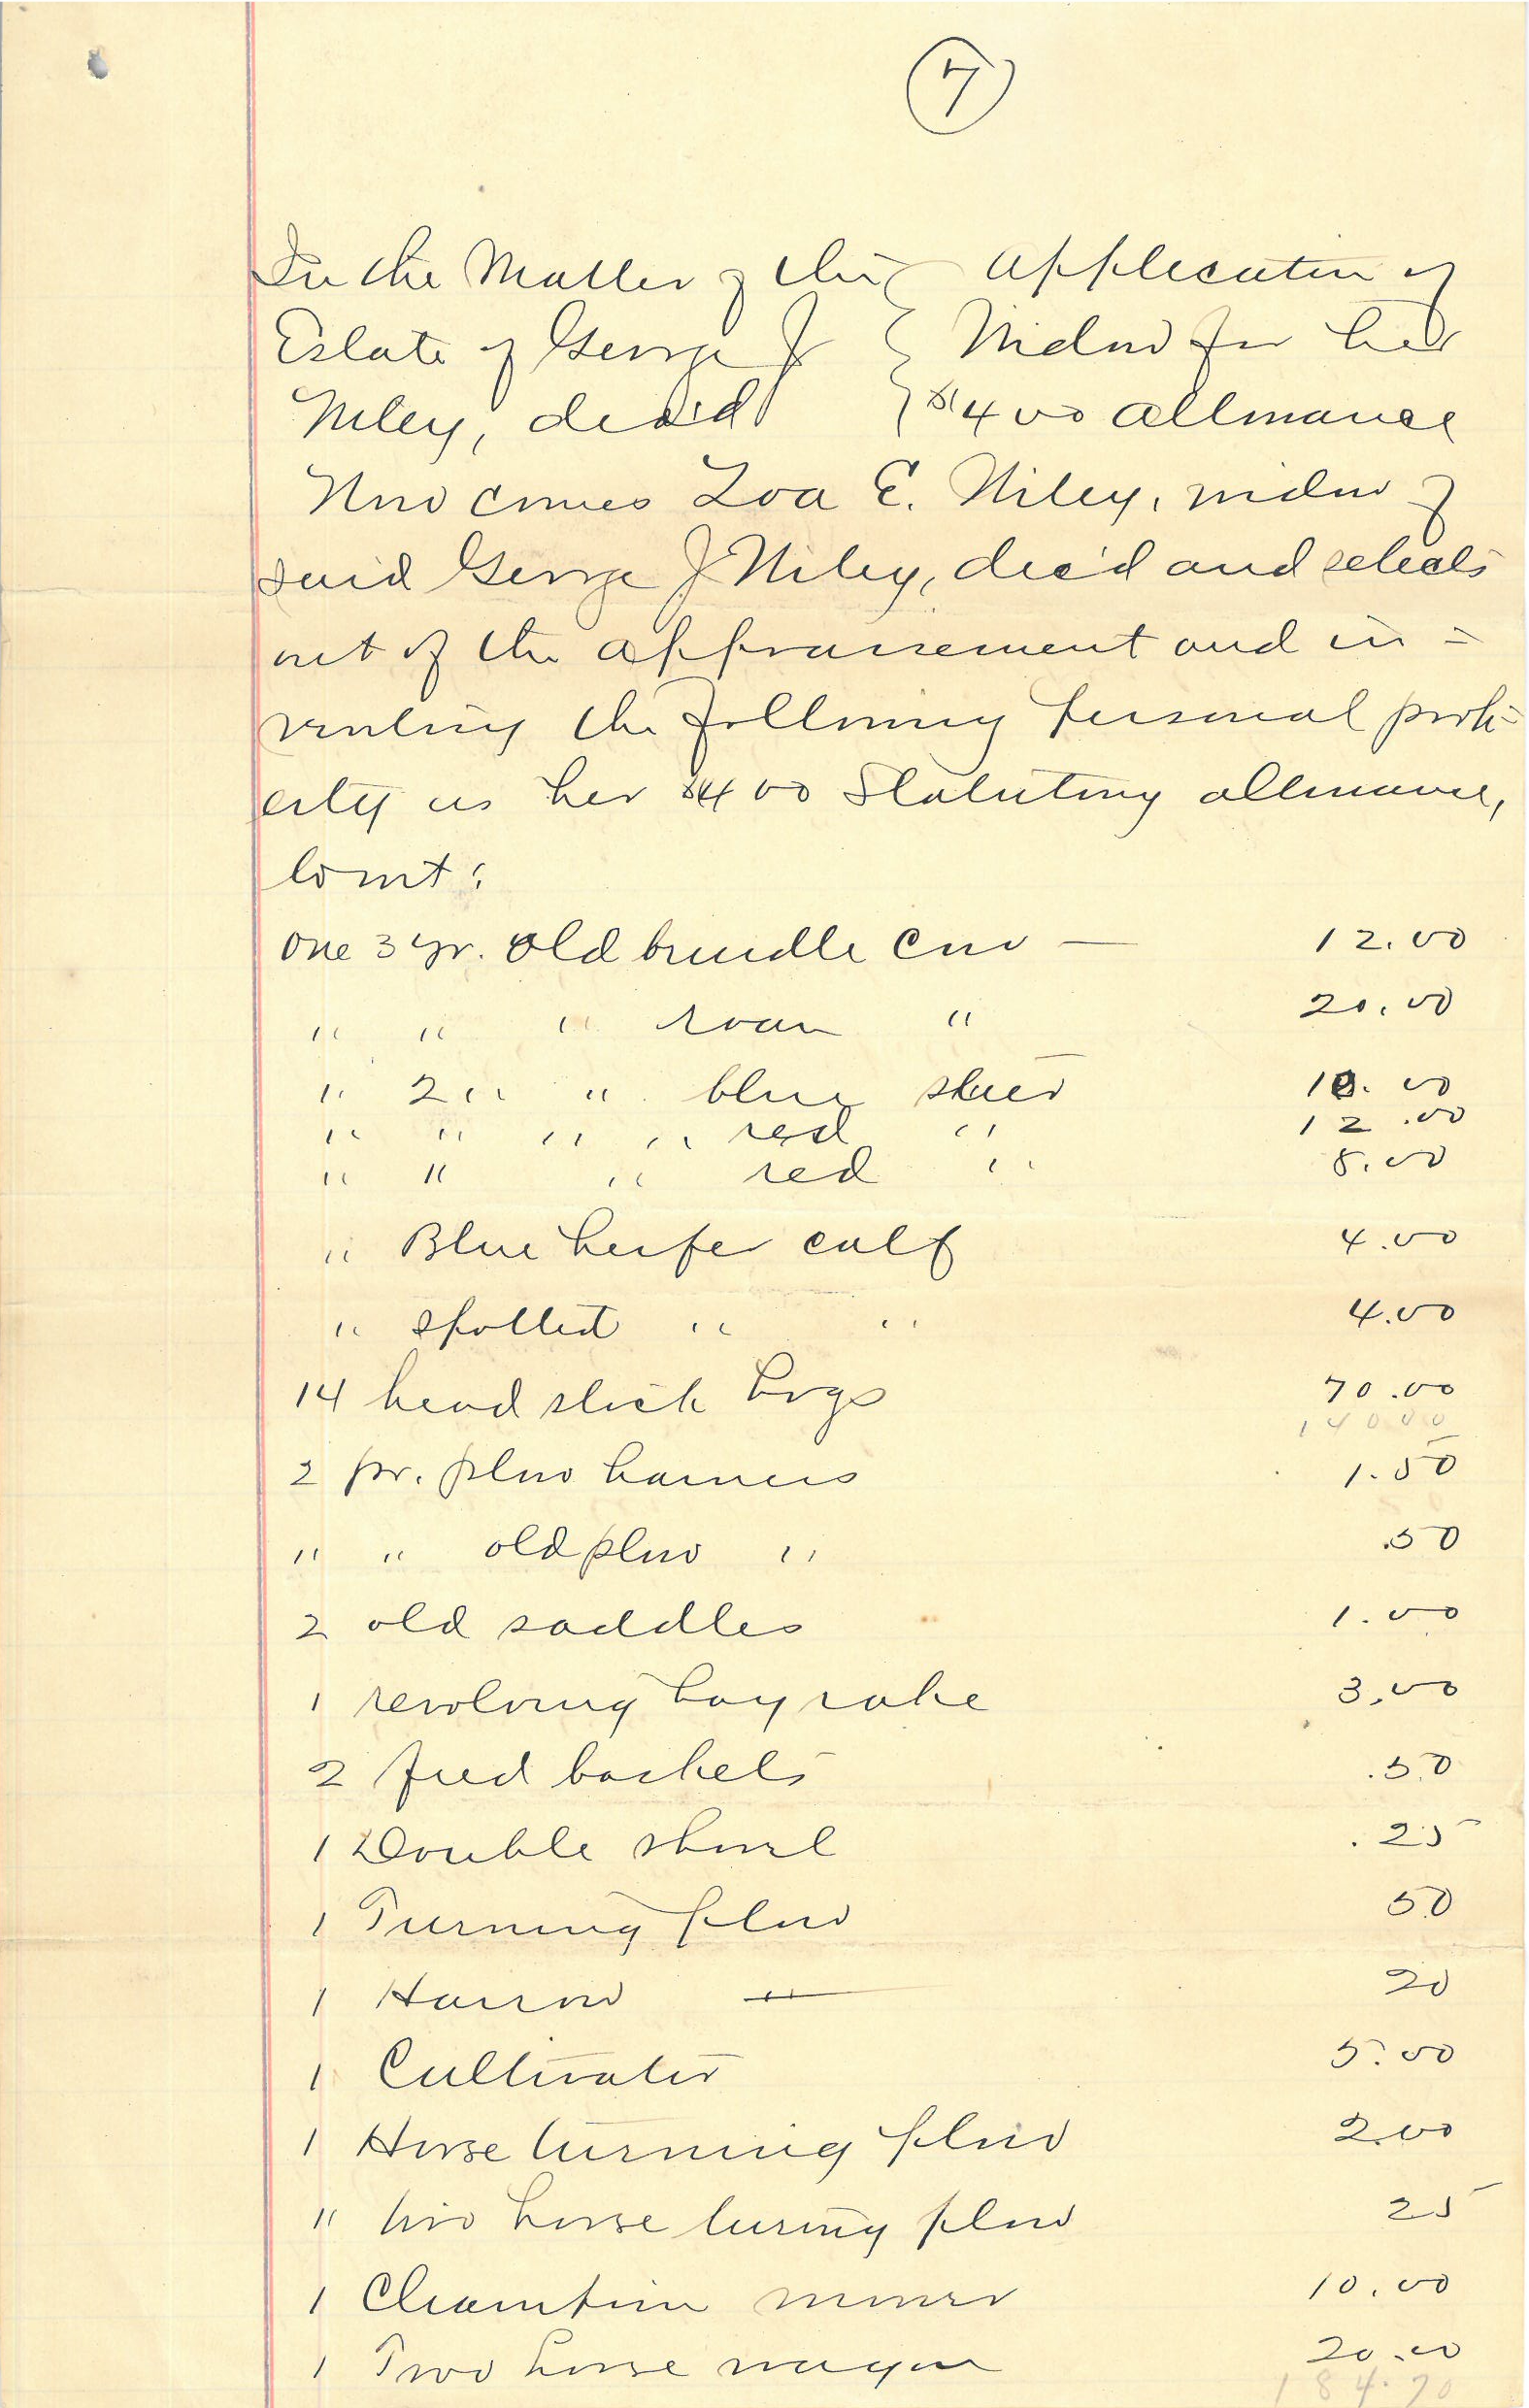 7
In the Matter of the } Application of
Estate of George J } Widow for her
Wiley, dec'd } $400 allowance
Now comes Zoa E. Wiley, widow of
said George J Wiley, dec'd and selects
out of the appraisement and in=
ventory the following personal prop=
erty as her $400 Statutory allowance,
towit:
One 3 yr. old brindle cow — 12.00
" " " roan " 20.00
" 2 " " blue steer 10.00
" " " " red " 12.00
" " " red " 8.00
" Blue heifer calf 4.00
" spotted " " 4.00
14 head stock hogs 70.00
140.00
2 pr. plow harness 1.50
" " old plow " .50
2 old saddles 1.00
1 revolving hay rake 3.00
2 feed baskets .50
1 Double shovel .25
1 Turning plow 50
1 Harrow — " 20
1 Cultivator 5.00
1 Horse turning plow 2.00
" two horse turing plow 25
1 Champion mower 10.00
1 Two horse wagon 20.00
184.70